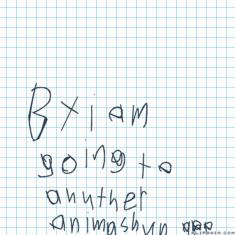 B X i am
going to
anuther
animashun app